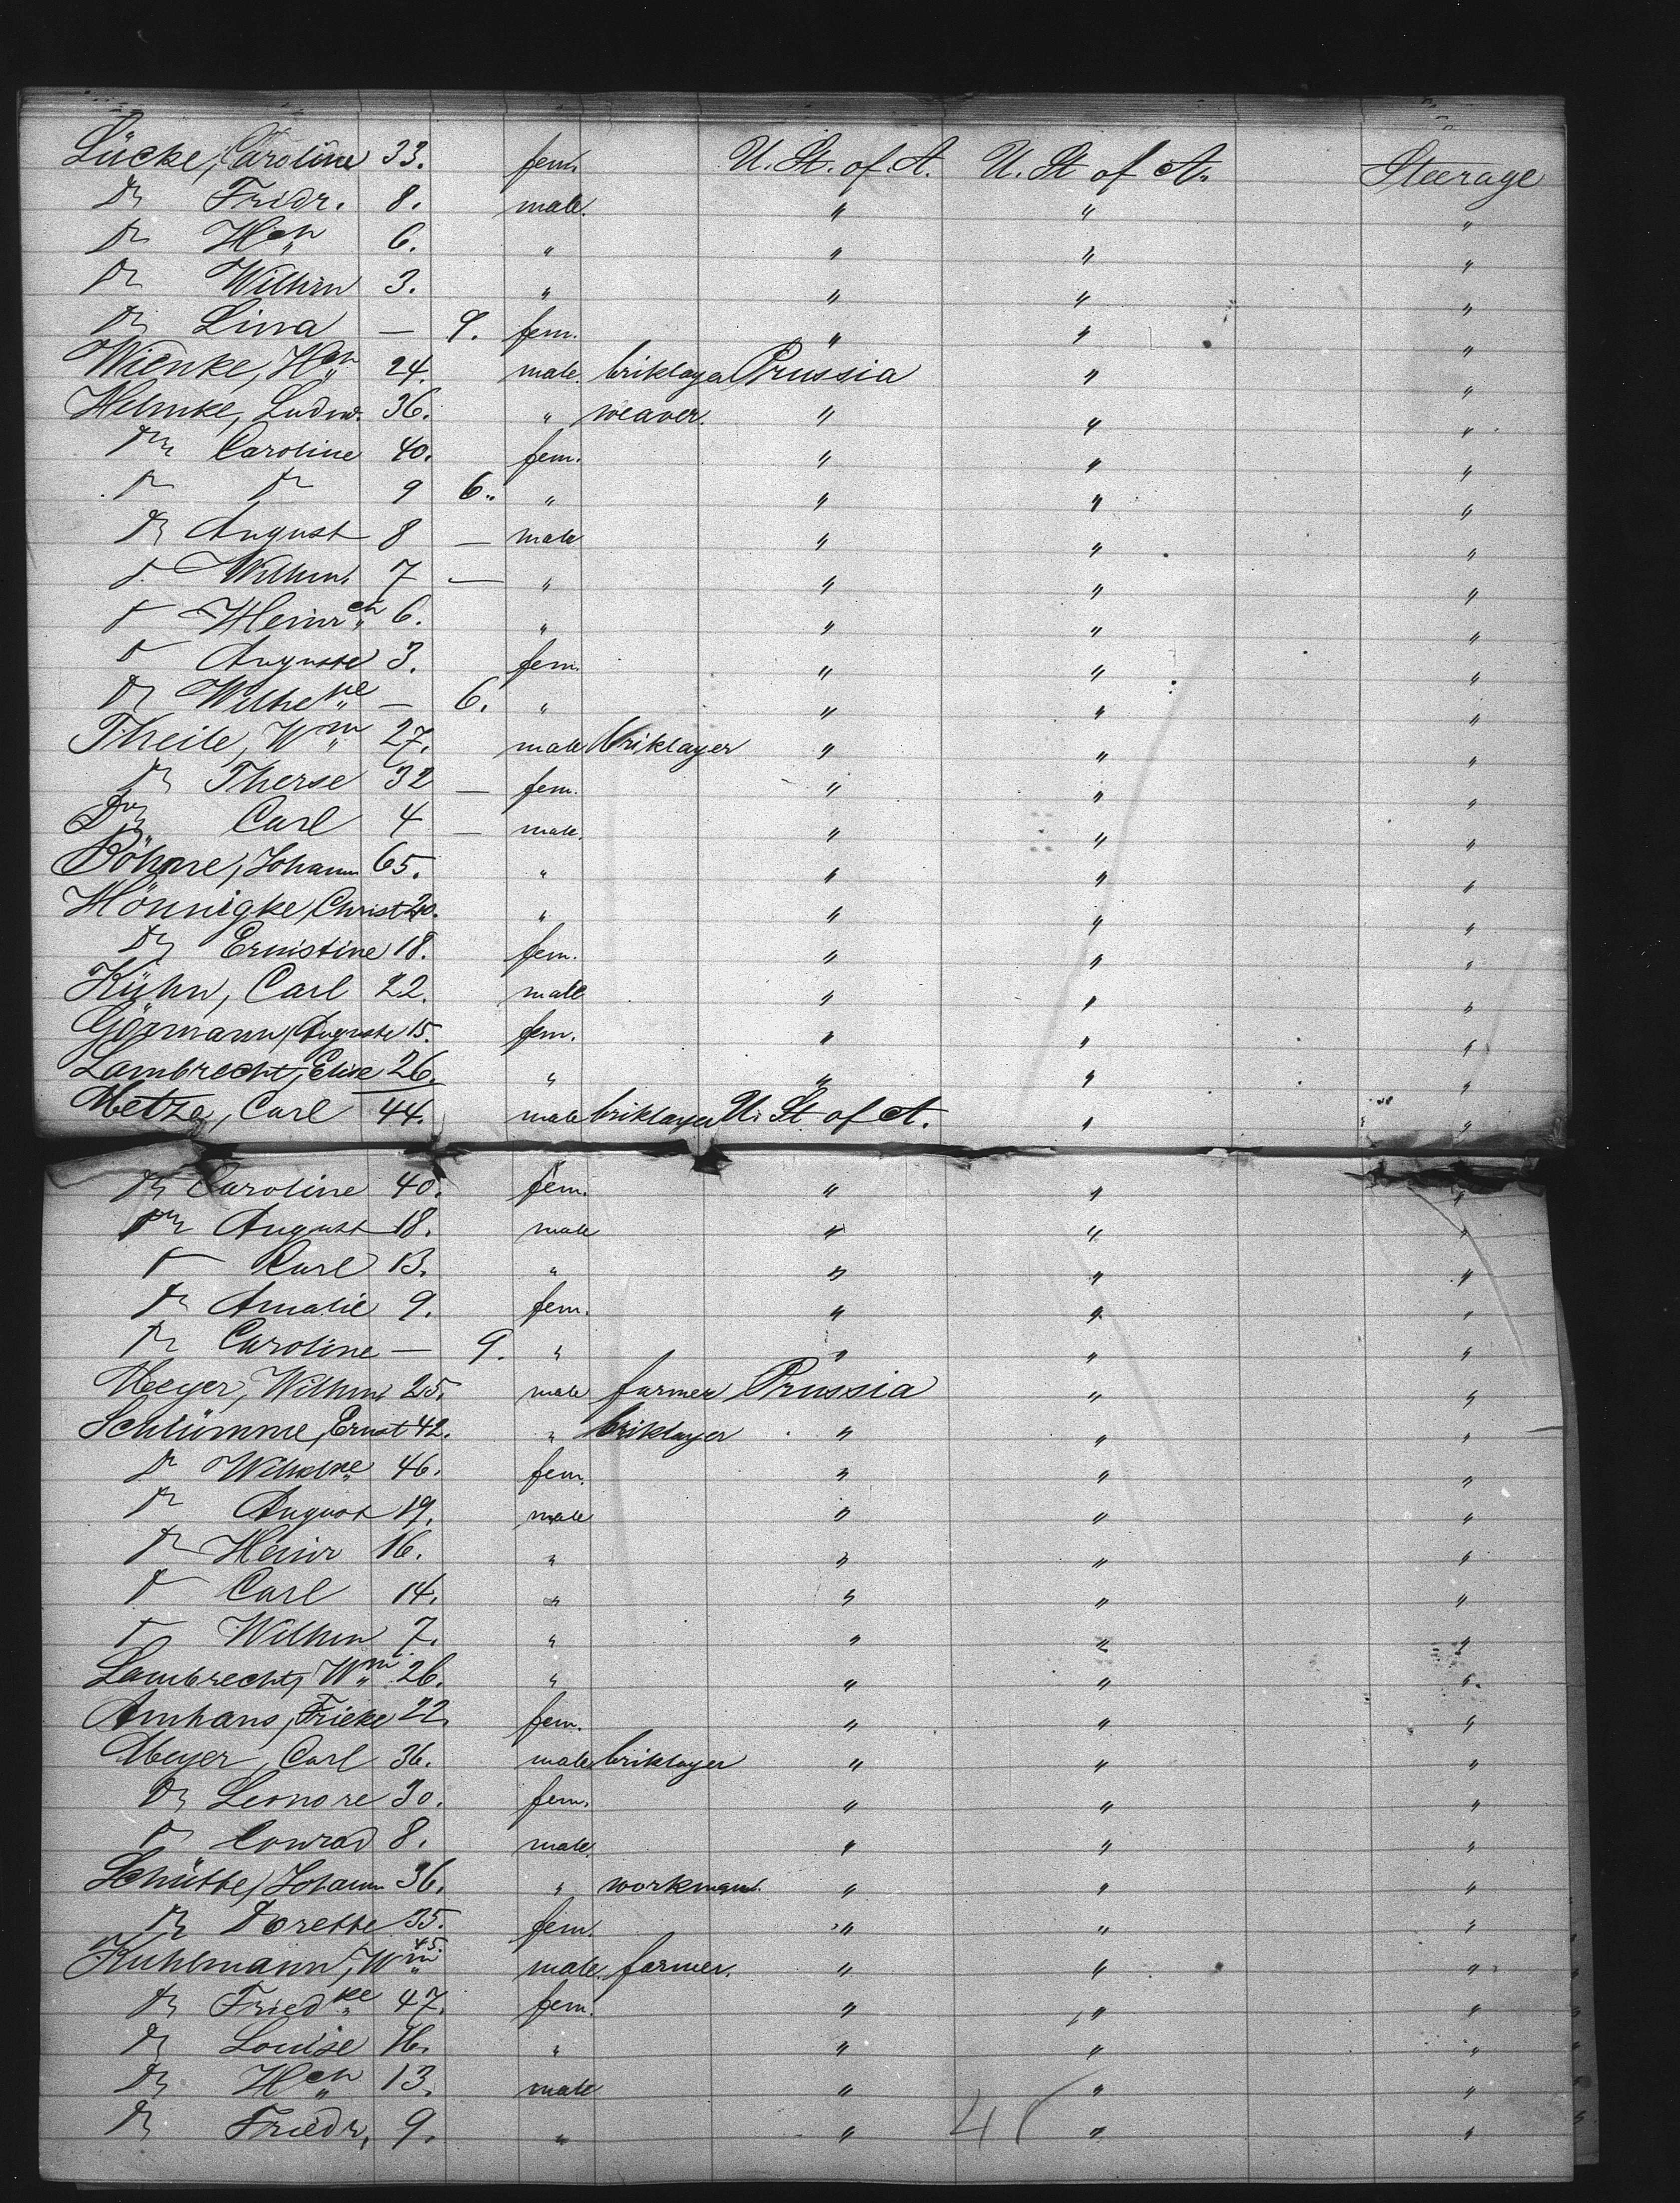 Lücke, Caroline 33. fem. U. St. of A. U. St of A. Steerage
Do Fridr. 8. male. " " "
Do Hch 6. " " " "
Do Wilhm 3. " " " "
Do Lina — 9. fem. " " "
Wienke, Hch 24. male. briklayer Prussia " "
Helmke, Ludw. 36. " weaver. " " "
Do Caroline 40. fem. " " "
Do Do 9 6. " " " "
Do August 8 — male " " "
Do Wilhm. 7 — " " " "
Do Heinrch 6. " " " "
Do Auguste 3. fem. " " "
Do Wilhelne — 6. " " " "
Theile, Wm 27. male briklayer " " "
Do Therse 32 — fem. " " "
Do Carl 4 — male. " " "
Böhme, Johann 65. " " " "
Hönnigke, Christ 20. " " " "
Do Ernistine 18. fem. " " "
Kühn, Carl 22. male " " "
Görmann, Auguste 15. fem. " " "
Lambrecht, Elise 26. " " " "
Metze, Carl 44. male briklayer U. St of A. " "
Do Caroline 40. fem. " " "
Do August 18. male " " "
Do Carl 13. " " " "
Do Amalie 9. fem. " " "
Do Caroline — 9. " " " "
Meyer, Wilhm 25. male farmer Prussia " "
Schlümme, Ernst 42. " briklayer " " "
Do Wilhelne 46. fem. " " "
Do August 19. male " " "
Do Heinr 16. " " " "
Do Carl 14. " " " "
Do Wilhm 7. " " " "
Lambrecht, Wm 26. " " " "
Amhans, Frieke 22. fem. " " "
Meyer, Carl 36. male briklayer " " "
Do Leonore 30. fem. " " "
Do Conrad 8. male. " " "
Schütte, Johann 36. " workman. " " "
Do Dorette 35. fem. " " "
Kuhlmann, Wm 45. male. farmer. " " "
Do Friedke 47. fem. " " "
Do Louise 16. " " " "
Do Hch 13. male " " "
Do Friedr. 9. " " " "